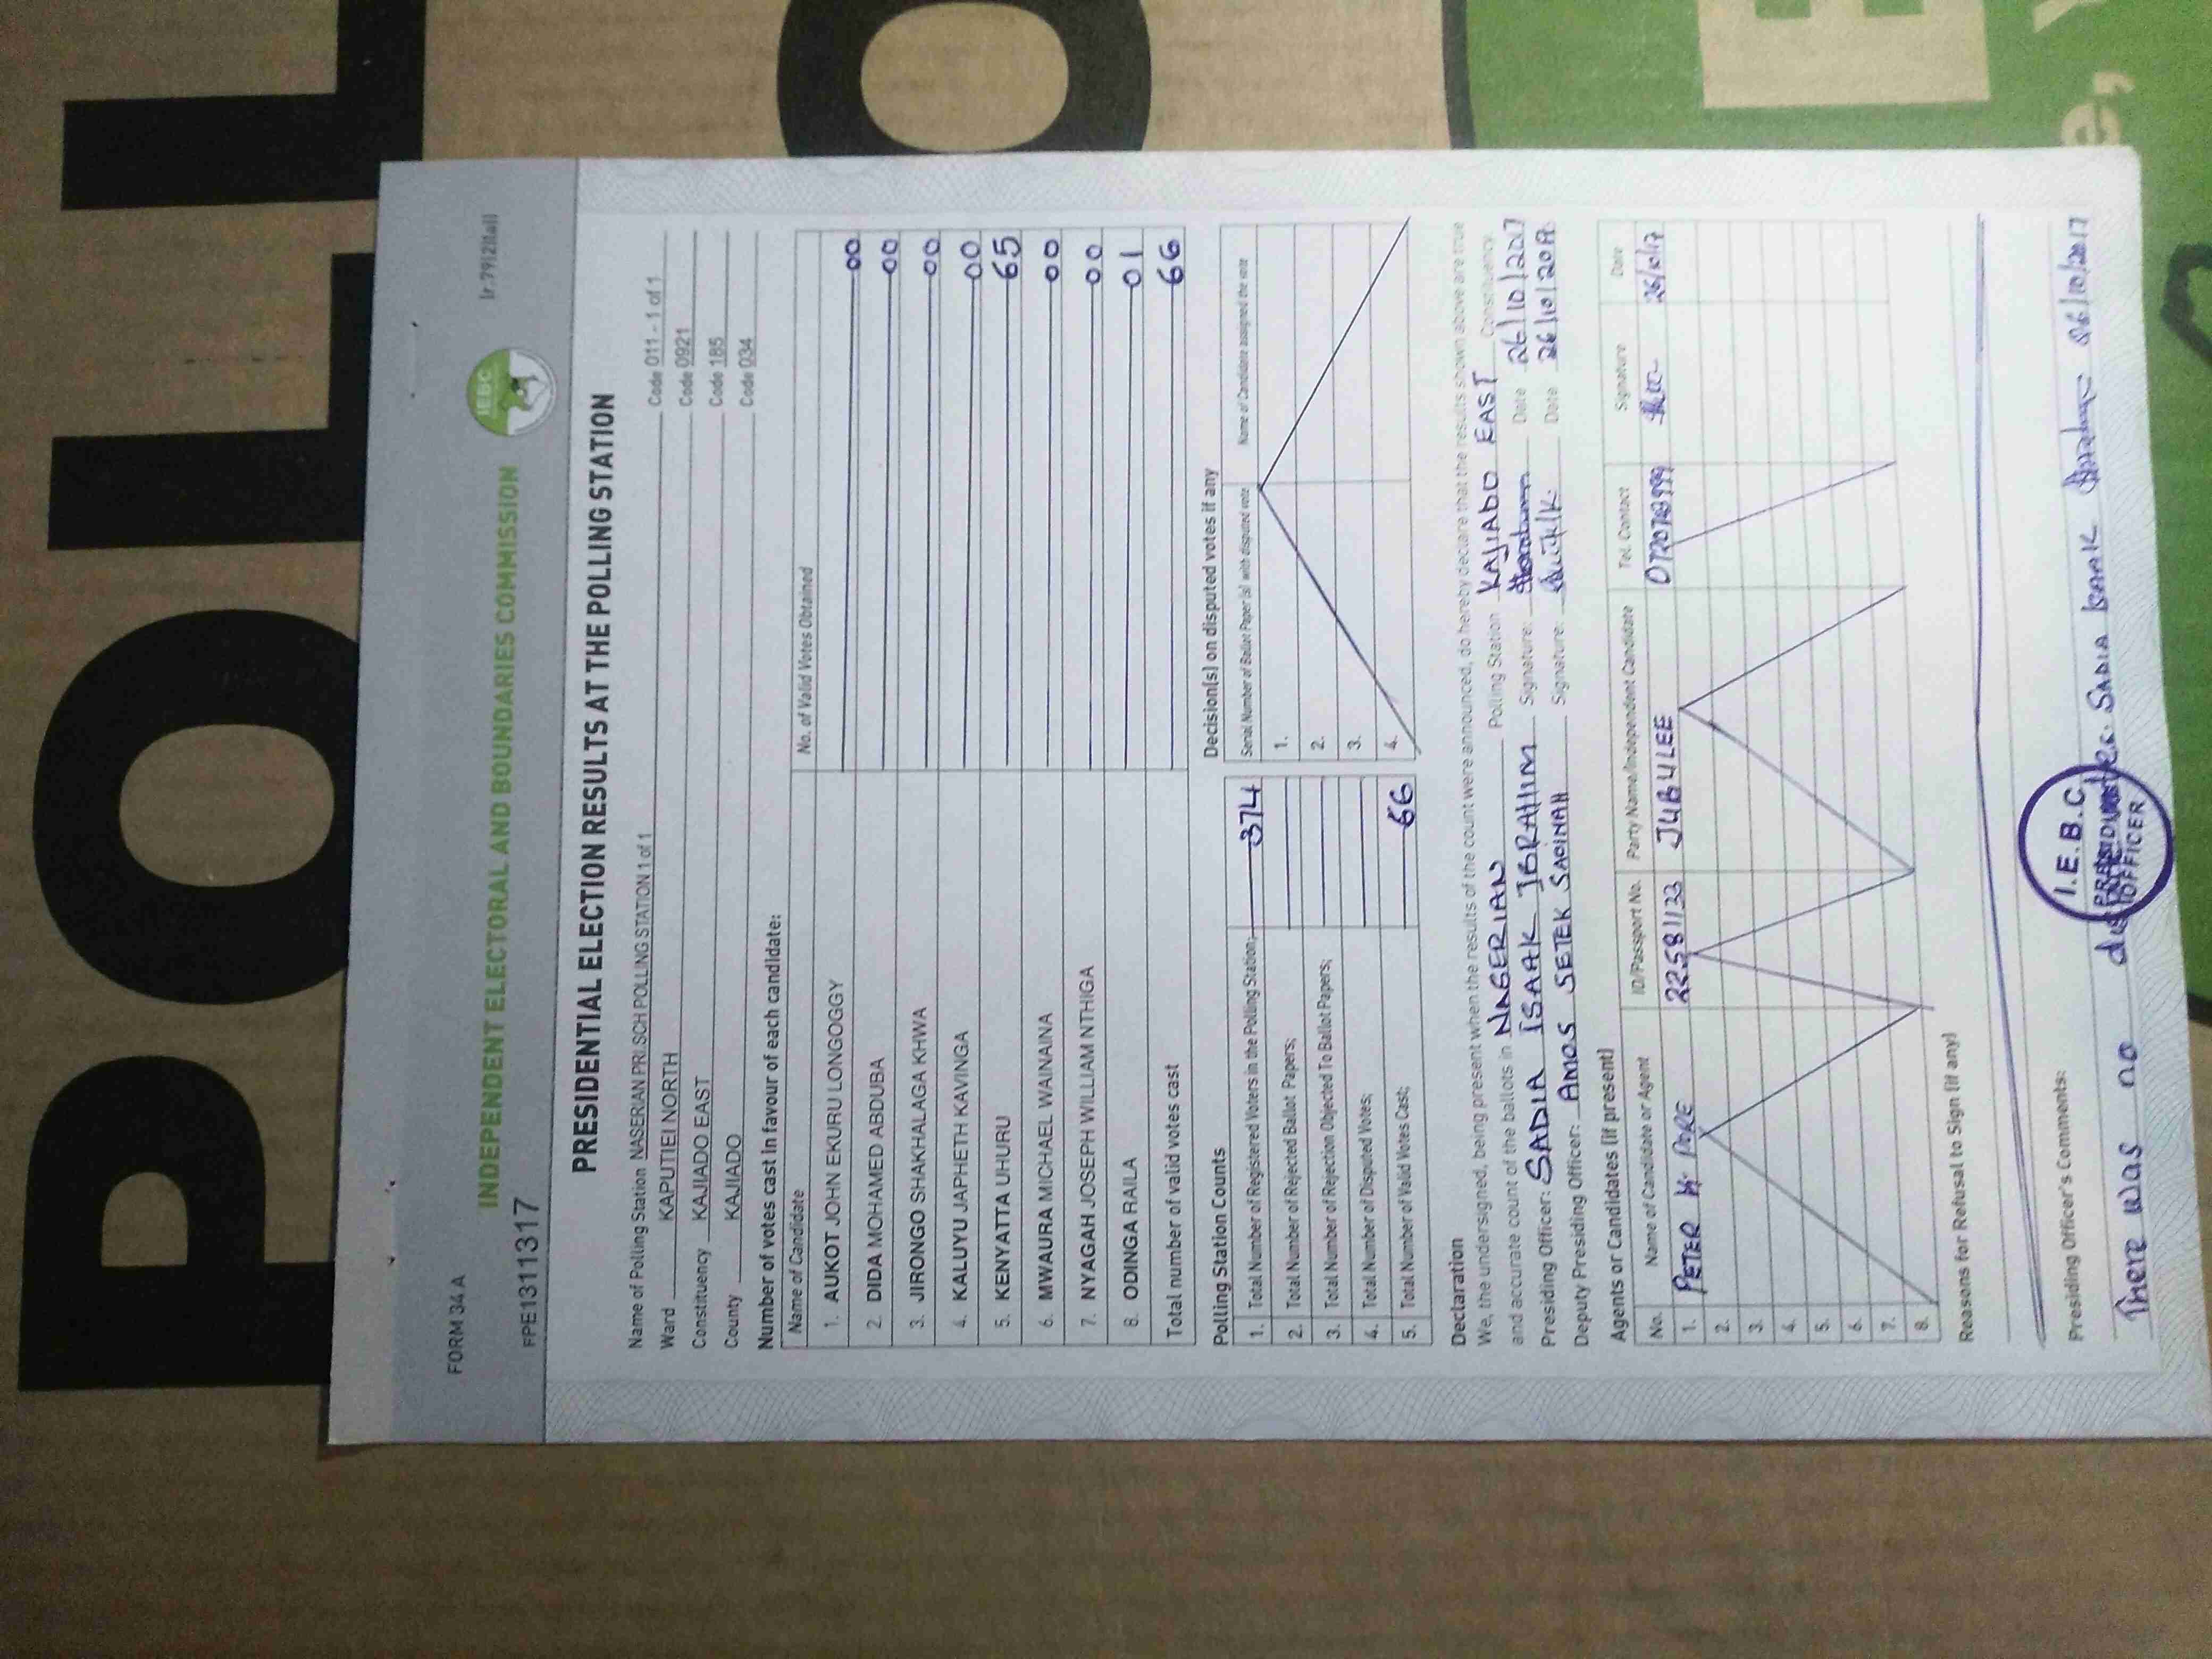 POLL
FORM 34 A
INDEPENDENT ELECTORAL AND BOUNDARIES COMMISSION
IEBC
FPE1311317
PRESIDENTIAL ELECTION RESULTS AT THE POLLING STATION
Name of Polling Station NASERIAN PRI SCH POLLING STATION 1 of 1 Code 011 - 1 of 1
Ward KAPUTIEI NORTH Code 0921
Constituency KAJIADO EAST Code 185
County KAJIADO Code 034
Number of votes cast in favour of each candidate:
Name of Candidate No. of Valid Votes Obtained
1. AUKOT JOHN EKURU LONGOGGY 00
2. DIDA MOHAMED ABDUBA 00
3. JIRONGO SHAKHALAGA KHWA 00
4. KALUYU JAPHETH KAVINGA 00
5. KENYATTA UHURU 65
6. MWAURA MICHAEL WAINAINA 00
7. NYAGAH JOSEPH WILLIAM NTHIGA 00
8. ODINGA RAILA 01
Total number of valid votes cast 66
Polling Station Counts
1. Total Number of Registered Voters in the Polling Station; 374
2. Total Number of Rejected Ballot Papers;
3. Total Number of Rejection Objected To Ballot Papers;
4. Total Number of Disputed Votes;
5. Total Number of Valid Votes Cast; 66
Decision(s) on disputed votes if any
Serial Number of Ballot Paper (s) with disputed vote Name of Candidate assigned the vote
1.
2.
3.
4.
Declaration
We, the undersigned, being present when the results of the count were announced, do hereby declare that the results shown above are true
and accurate count of the ballots in NASERIAN Polling Station KAJIADO EAST Constituency
Presiding Officer: SADIA ISAAK IBRAHIM Signature: Date 26/10/2017
Deputy Presiding Officer: AMOS SETEK SAOINAH Signature: Date 26/10/2017
Agents or Candidates (if present)
No. Name of Candidate or Agent ID/Passport No. Party Name/Independent Candidate Tel. Contact Signature Date
1. PETER K. PORE 22581133 JUBULEE 0720768999 26/10/17
2.
3.
4.
5.
6.
7.
8.
Reasons for Refusal to Sign (if any)
Presiding Officer's Comments:
There was no SADIA ISAAK 26/10/2017
I.E.B.C.
PRESIDING
OFFICER